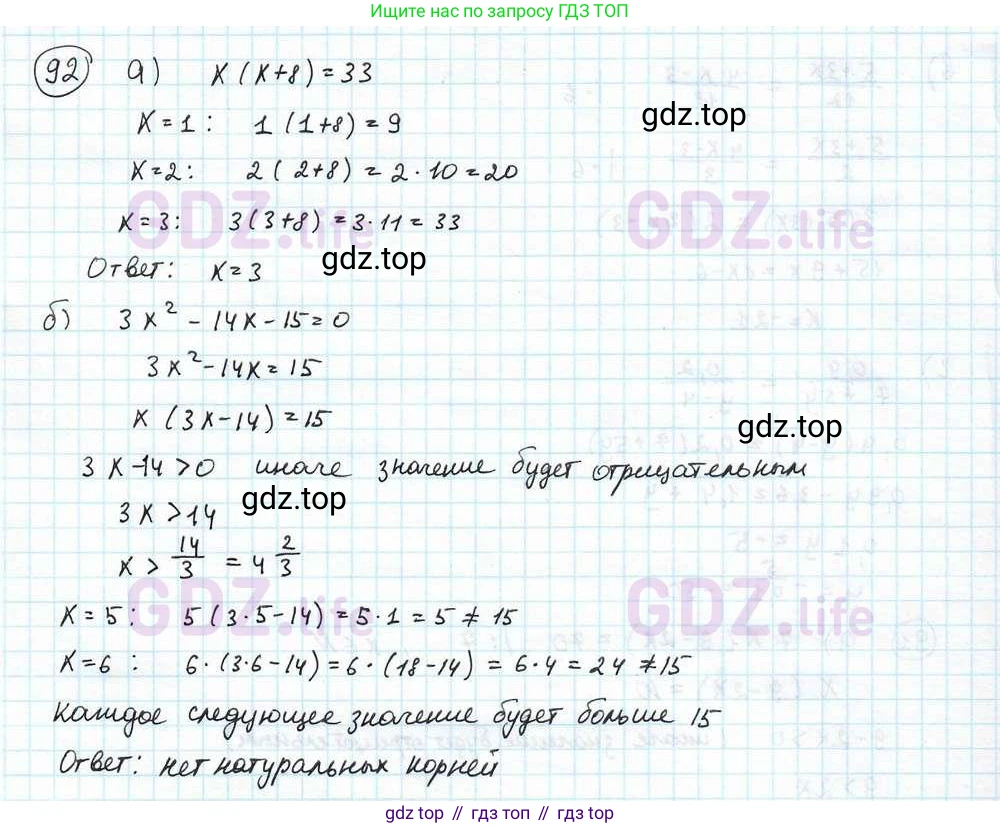 Ищите нас по запросу ГДЗ ТОП
92 а) x(x+8)=33
x=1: 1(1+8)=9
gdz.top
x=2: 2(2+8)=2·10=20
x=3: 3(3+8)=3·11=33
GDZ.life GDZ.life
gdz.top
Ответ: x=3
б) 3x²-14x-15=0
3x²-14x=15
x(3x-14)=15
gdz.top
3x-14>0 иначе значение будет отрицательным
gdz.top
3x>14
x>14/3=4 2/3
GDZ.life GDZ.life
x=5: 5(3·5-14)=5·1=5≠15
x=6: 6·(3·6-14)=6·(18-14)=6·4=24≠15
Каждое следующее значение будет больше 15
Ответ: нет натуральных корней
gdz top // гдз топ // gdz.top // гдз.топ